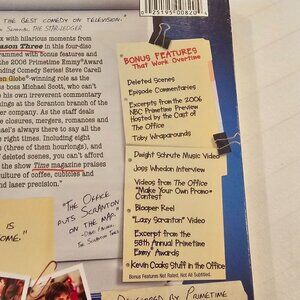 THE BEST COMEDY ON TELEVISION."
THE STAR-LEDGER
0 25195 00820 4
with hilarious moments from
ason Three in this four-disc
rammed with bonus features and
the 2006 Primetime Emmy® Award
nding Comedy Series! Steve Carell
en Globe®-winning role as the
us boss Michael Scott, who can't
his own irreverent commentary
nings at the Scranton branch of the
er company. As the staff deals
e closures, mergers, romances and
ael's always there to say all the
e right times. Including eight
s (three of them hourlongs), and
f deleted scenes, you can't afford
f the show Time magazine praises
culture of coffee, cubicles and
nd laser precision."
BONUS FEATURES
That Work Overtime
Deleted Scenes
Episode Commentaries
Excerpts from the 2006
NBC Primetime Preview
Hosted by the Cast of
The Office
Toby Wraparounds
Dwight Schrute Music Video
Joss Whedon Interview
Videos from The Office
"Make Your Own Promo"
Contest
Blooper Reel
"Lazy Scranton" Video
Excerpt from the
58th Annual Primetime
Emmy® Awards
Kevin Cooks Stuff in the Office
Bonus Features Not Rated. Not All Subtitled.
IS
OME."
"THE OFFICE
PUTS SCRANTON
ON THE MAP."
THE SCRANTON TIMES
DEVELOPED BY PRIMETIME